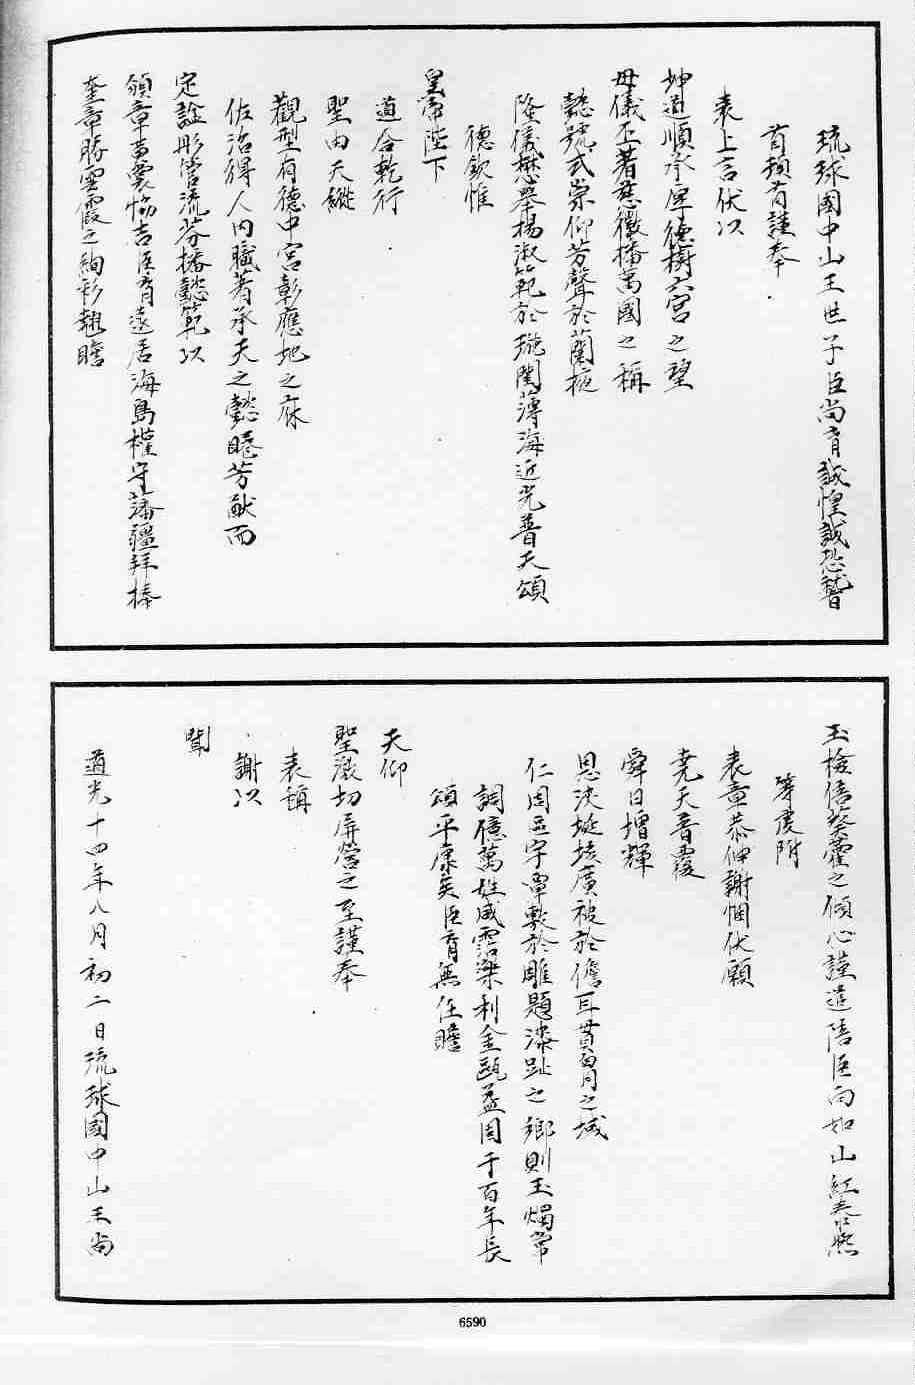 琉球國中山王世子臣尚育誠惶誠恐稽
首頓首謹奉
表上言伏以
坤道順承厚德樹六宮之望
母儀丕著慈徽播萬國之稱
懿號式崇仰芳聲於蘭掖
隆儀懋舉楊淑範於璇闈薄海近光普天頌
德欽惟
皇帝陛下
道合乾行
聖由天縱
觀型有德中宮彰應地之庥
佐治得人內職著承天之懿睠芳猷而
定諡彤管流芬播懿範以
頒章袞協吉臣育遠居海島權守藩疆拜捧
奎章勝雲霞之絢彩翹瞻
玉檢倍葵藿之傾心謹遣陪臣向如山紅春熙
等虔附
表章恭伸謝悃伏願
堯天普覆
舜日增輝
恩浹埏垓廣被於儋耳貫胷之域
仁周區宇覃敷於雕題漆趾之鄉則玉燭常
調億萬姓咸霑樂利金甌益固千百年長
頌平康矣臣育無任瞻
天仰
聖激切屏營之至謹奉
表稱
謝以
聞
道光十四年八月初二日琉球國中山王尚
6590